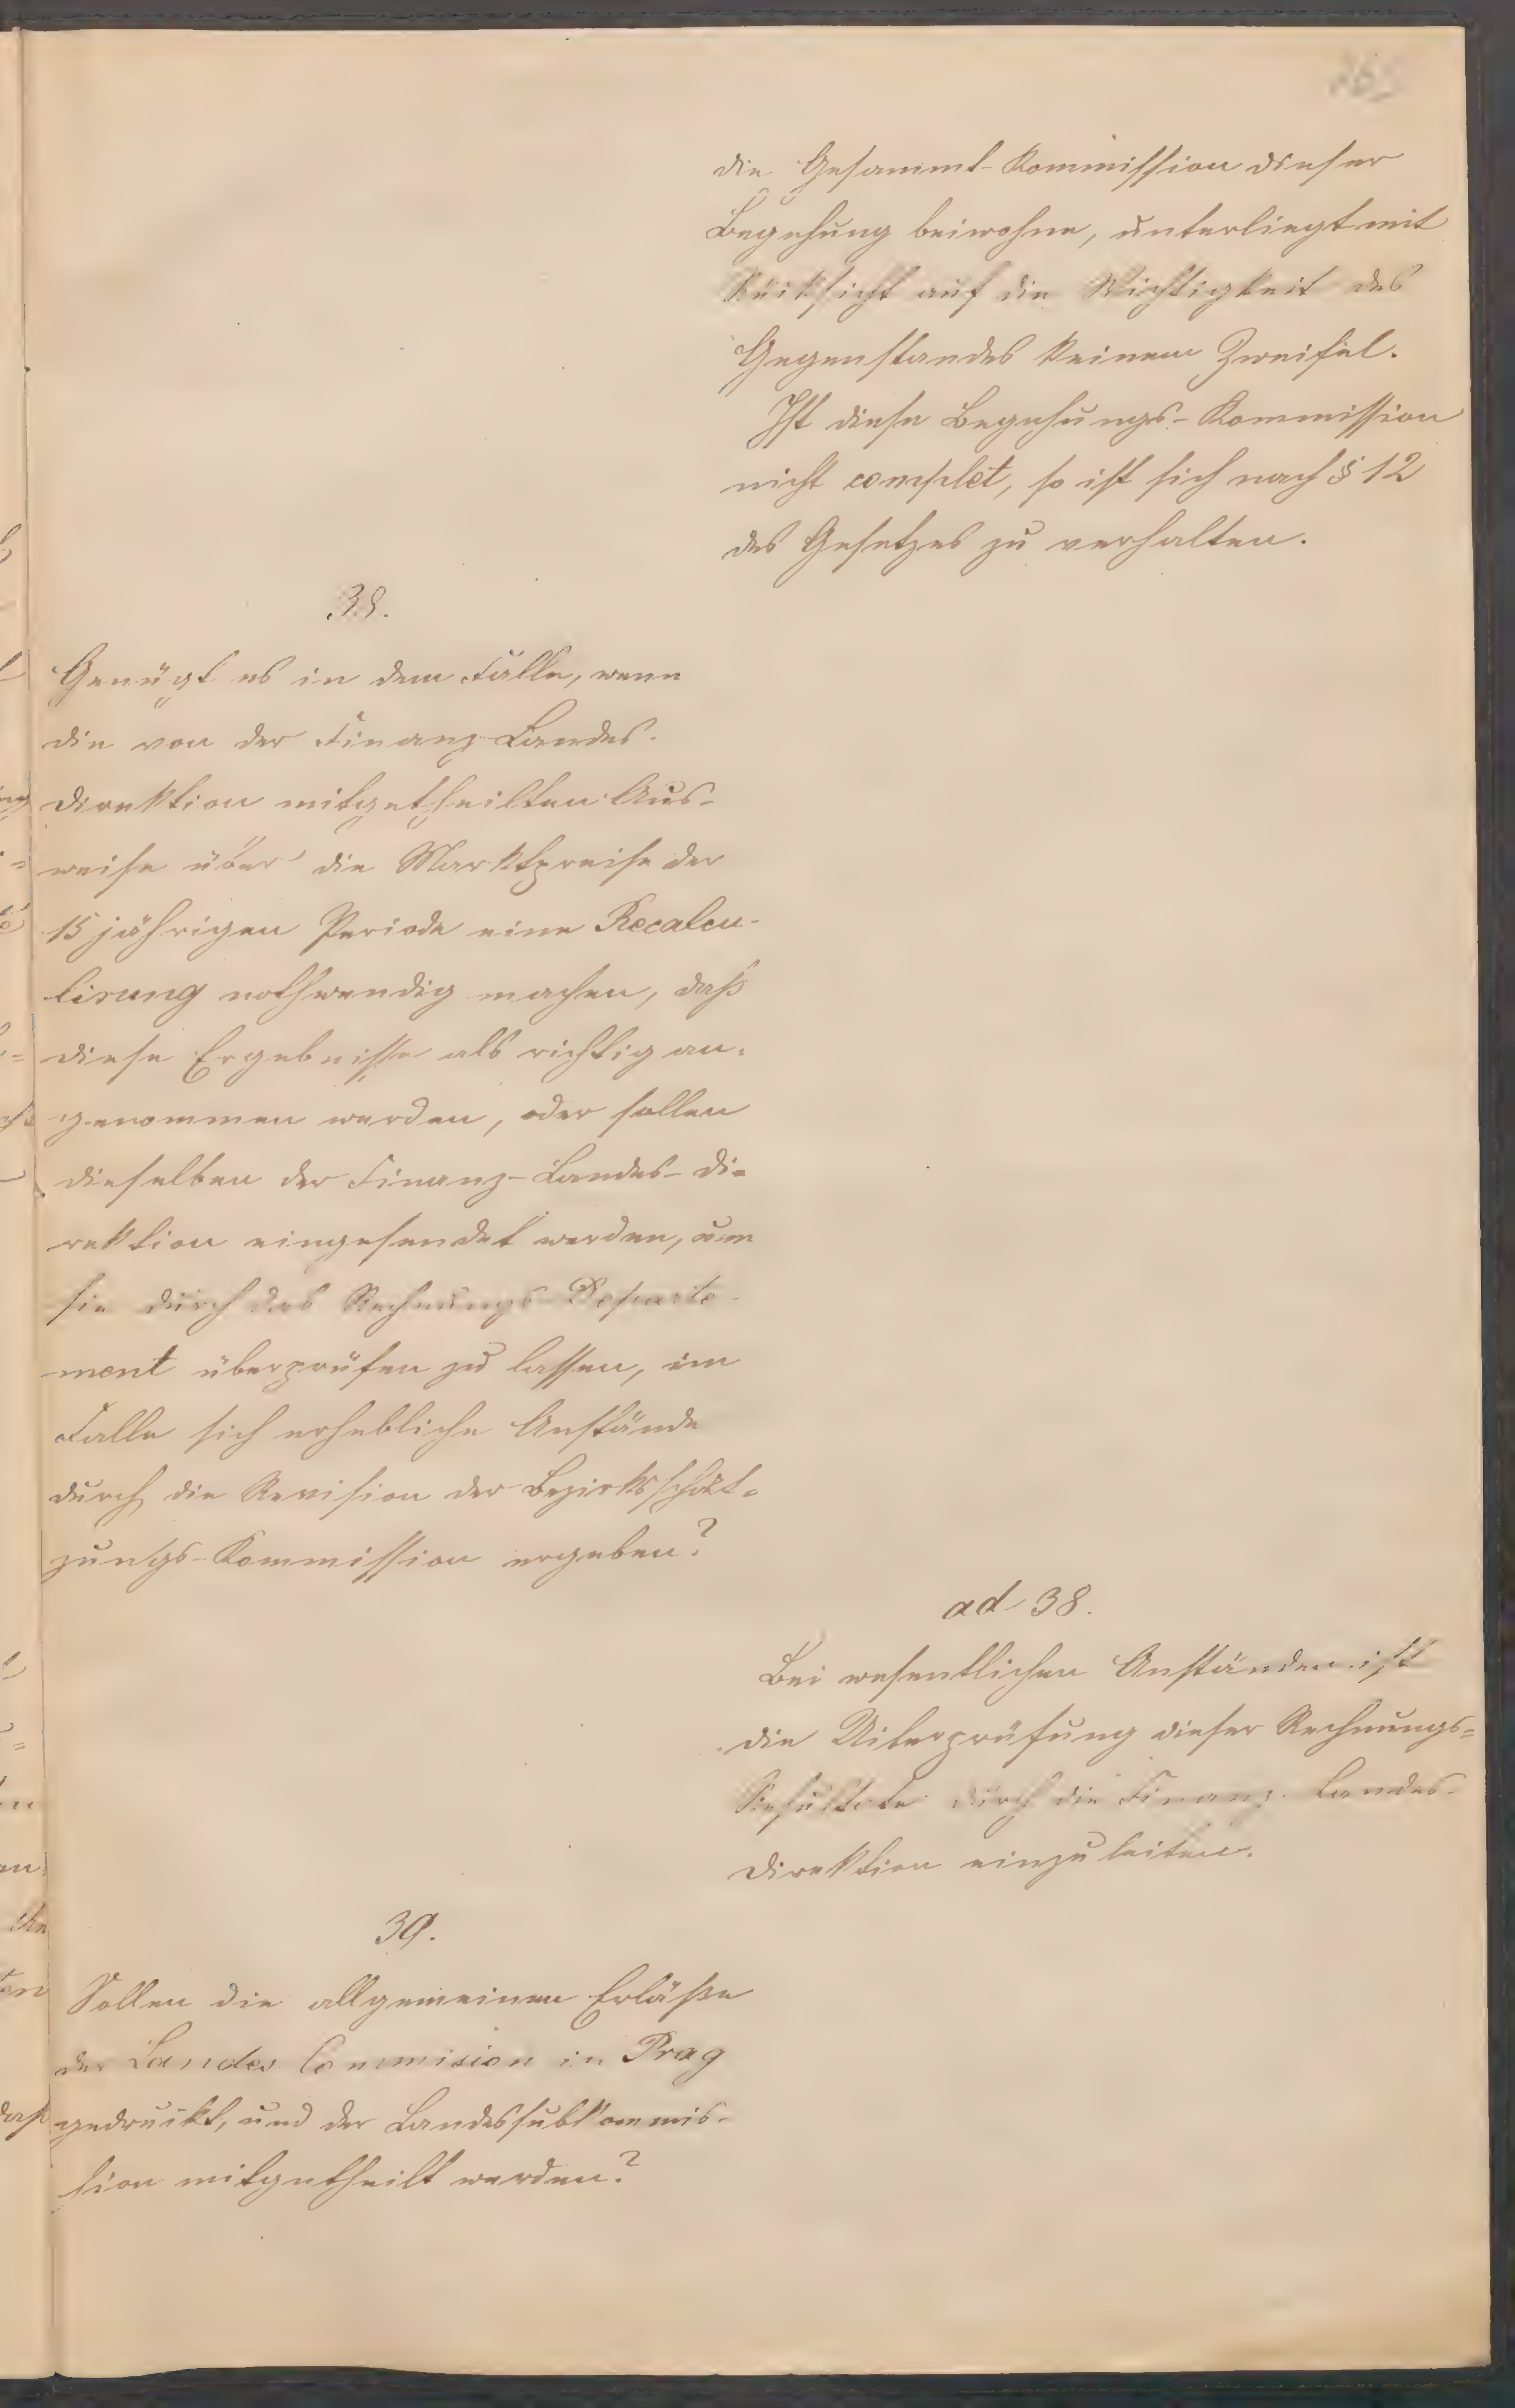 die Gesammt-Kommission dieser
Begehung beiwohne, unterliegt mit
Rüiksicht auf die Wichtigkeit des
Gegenstandes keinem Zweifel.
Ist diese Begehungs-Kommission
nicht complet, so ist sich nach § 12
des Gesetzes zu verhalten.
38.
Genügt es in dem Falle, wenn
die von der Finanz-Landes-
Direktion mitgetheilten Aus-
weise über die Marktpreise der
15 jährigen Periode eine Recalcu-
lirung nothwendig machen, daß
diese Ergebnisse als richtig an-
genommen werden, oder sollen
dieselben der Finanz-Landes-Di-
rektion eingesendet werden, um
sie durch das Rechnungs-Departe-
ment überprüfen zu lassen, im
Falle sich erhebliche Anstände
durch die Revision der Bezirksschät-
zungs-Kommission ergeben?
ad 38.
Bei wesentlichen Anständen ist
die Uiberprüfung dieser Rechnungs-
Resultate durch die Finanz-Landes-
Direktion einzuleiten.
39.
Sollen die allgemeinen Erläße
der Landes Commision in Prag
gedruikt, und der Landessubkommis-
sion mitgetheilt werden?